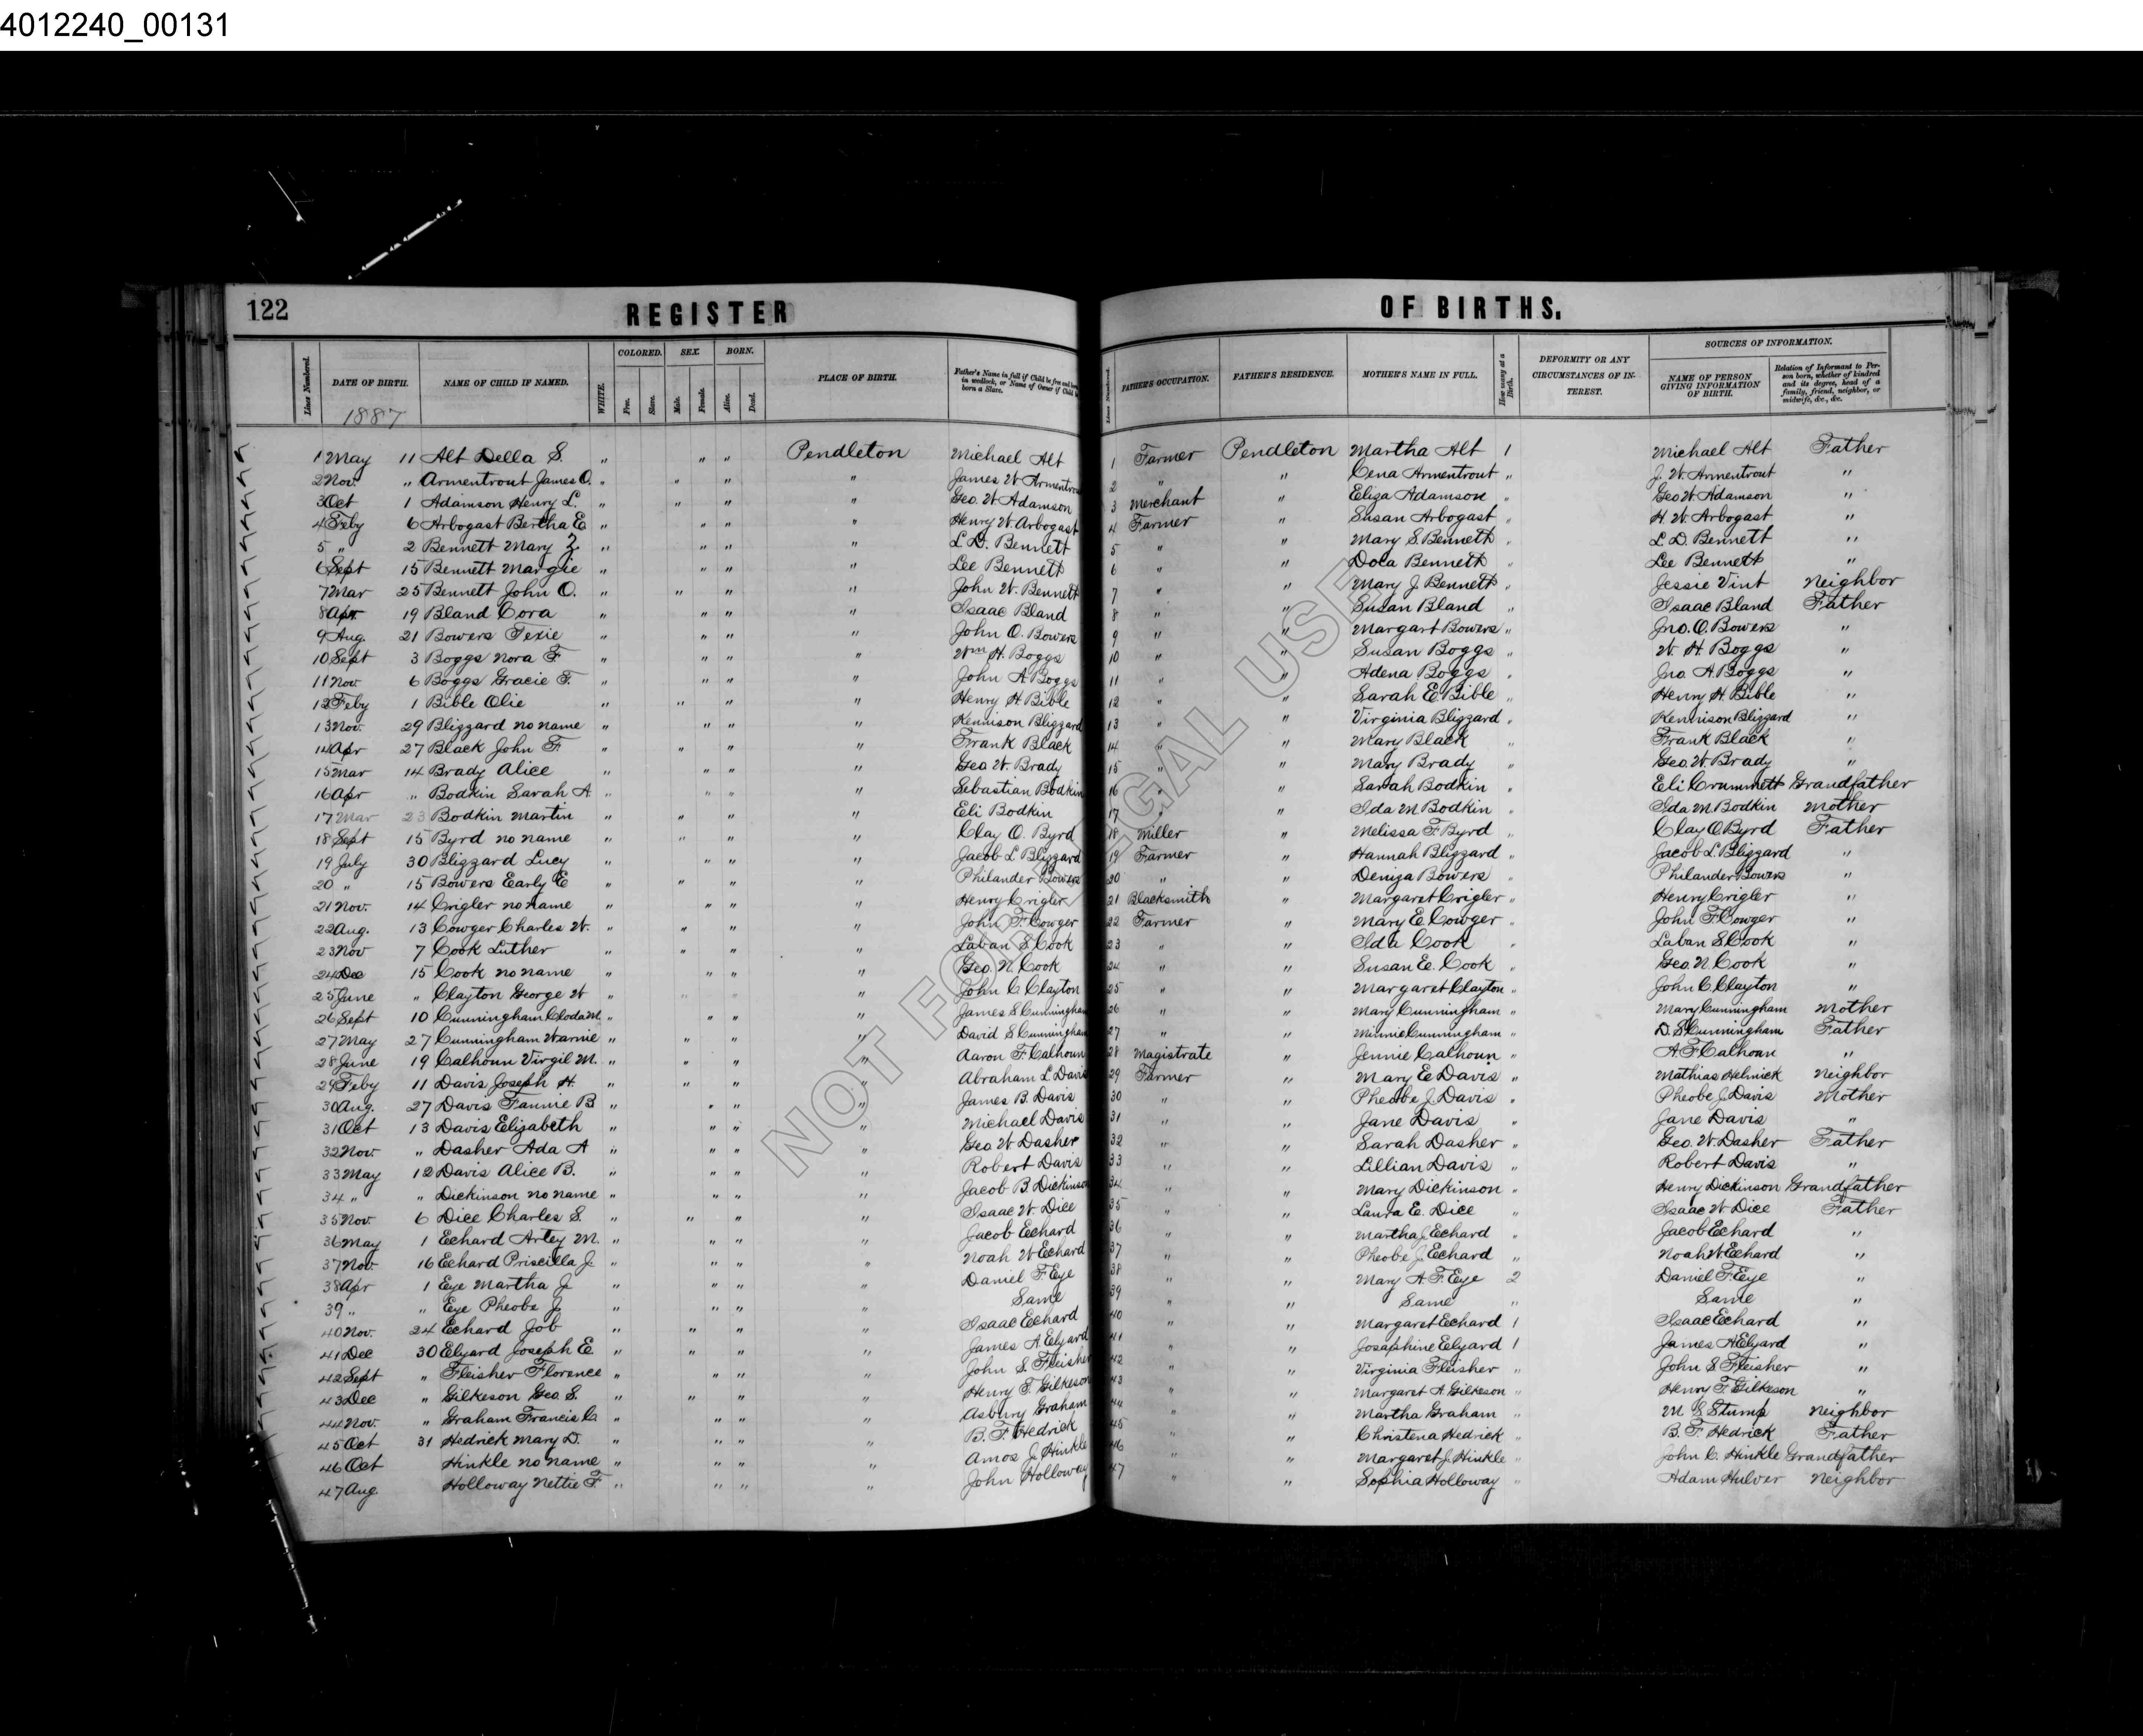 4012240_00131
122 REGISTER OF BIRTHS.
Lines Numbered. DATE OF BIRTH. 1887 NAME OF CHILD IF NAMED. WHITE. COLORED. Free. Slave. SEX. Male. Female. BORN. Alive. Dead. PLACE OF BIRTH. Father's Name in full if Child be free and born in wedlock, or Name of Owner if Child be born a Slave.
Lines Numbered. FATHER'S OCCUPATION. FATHER'S RESIDENCE. MOTHER'S NAME IN FULL. How many at a Birth. DEFORMITY OR ANY CIRCUMSTANCES OF INTEREST. SOURCES OF INFORMATION. NAME OF PERSON GIVING INFORMATION OF BIRTH. Relation of Informant to Person born, whether of kindred and its degree, head of a family, friend, neighbor, or midwife, &c., &c.
1 May 11 Alt Della S. " " " Pendleton Michael Alt 1 Farmer Pendleton Martha Alt 1 Michael Alt Father
2 Nov. " Armentrout James O. " " " " James W Armentrout 2 " " Cena Armentrout " J. W. Armentrout "
3 Oct 1 Adamson Henry L. " " " " Geo. W. Adamson 3 Merchant " Eliza Adamson " Geo W Adamson "
4 Feby 6 Arbogast Bertha E " " " " Henry W. Arbogast 4 Farmer " Susan Arbogast " H. W. Arbogast "
5 " 2 Bennett Mary Z " " " " L. D. Bennett 5 " " Mary S Bennett " L. D. Bennett "
6 Sept 15 Bennett Margie " " " " Lee Bennett 6 " " Dola Bennett " Lee Bennett "
7 Mar 25 Bennett John O. " " " " John W. Bennett 7 " " Mary J. Bennett " Jessie Vint Neighbor
8 Apr 19 Bland Cora " " " " Isaac Bland 8 " " Susan Bland " Isaac Bland Father
9 Aug. 21 Bowers Texie " " " " John O. Bowers 9 " " Margart Bowers " Jno. O. Bowers "
10 Sept 3 Boggs Nora F. " " " " Wm H. Boggs 10 " " Susan Boggs " W. H. Boggs "
11 Nov. 6 Boggs Gracie F. " " " " John A Boggs 11 " " Adena Boggs " Jno. A. Boggs "
12 Feby 1 Bible Olie " " " " Henry H. Bible 12 " " Sarah E Bible " Henry H. Bible "
13 Nov. 29 Blizzard no name " " " " Kennison Blizzard 13 " " Virginia Blizzard " Kennison Blizzard "
14 Apr 27 Black John F. " " " " Frank Black 14 " " Mary Black " Frank Black "
15 Mar 14 Brady Alice " " " " Geo. W. Brady 15 " " Mary Brady " Geo. W. Brady "
16 Apr " Bodkin Sarah A. " " " " Sebastian Bodkin 16 " " Sarah Bodkin " Eli Crummett Grandfather
17 Mar 23 Bodkin Martin " " " " Eli Bodkin 17 " " Ida M. Bodkin " Ida M. Bodkin Mother
18 Sept 15 Byrd no name " " " " Clay O. Byrd 18 Miller " Melissa F. Byrd " Clay O. Byrd Father
19 July 30 Blizzard Lucy " " " " Jacob L Blizzard 19 Farmer " Hannah Blizzard " Jacob L. Blizzard "
20 " 15 Bowers Early E " " " " Philander Bowers 20 " " Deniza Bowers " Philander Bowers "
21 Nov. 14 Crigler no name " " " " Henry Crigler 21 Blacksmith " Margaret Crigler " Henry Crigler "
22 Aug. 13 Cowger Charles W. " " " " John F. Cowger 22 Farmer " Mary E. Cowger " John F. Cowger "
23 Nov 7 Cook Luther " " " " Laban S Cook 23 " " Ida Cook " Laban S. Cook "
24 Dec 15 Cook no name " " " " Geo. N. Cook 24 " " Susan E. Cook " Geo. N. Cook "
25 June " Clayton George W " " " " John C Clayton 25 " " Margaret Clayton " John C. Clayton "
26 Sept 10 Cunningham Cloda M. " " " " James S Cunningham 26 " " Mary Cunningham " Mary Cunningham Mother
27 May 27 Cunningham Warnie " " " " David S Cunningham 27 " " Minnie Cunningham " D. S. Cunningham Father
28 June 19 Calhoun Virgil M. " " " " Aaron F. Calhoun 28 Magistrate " Jennie Calhoun " A. F. Calhoun "
29 Feby 11 Davis Joseph H. " " " " Abraham L Davis 29 Farmer " Mary E Davis " Mathias Helmick Neighbor
30 Aug. 27 Davis Fannie B " " " " James B. Davis 30 " " Pheobe J. Davis " Pheobe J. Davis Mother
31 Oct 13 Davis Elizabeth " " " " Michael Davis 31 " " Jane Davis " Jane Davis "
32 Nov. " Dasher Ada A " " " " Geo. W. Dasher 32 " " Sarah Dasher " Geo. W. Dasher Father
33 May 12 Davis Alice B. " " " " Robert Davis 33 " " Lillian Davis " Robert Davis "
34 " " Dickinson no name " " " " Jacob B. Dickinson 34 " " Mary Dickinson " Henry Dickinson Grandfather
35 Nov. 6 Dice Charles S. " " " " Isaac W. Dice 35 " " Laura E. Dice " Isaac W Dice Father
36 May 1 Echard Artey M. " " " " Jacob Echard 36 " " Martha J Echard " Jacob Echard "
37 Nov. 16 Echard Priscilla J. " " " " Noah W Echard 37 " " Pheobe J. Echard " Noah W Echard "
38 Apr 1 Eye Martha J. " " " " Daniel F. Eye 38 " " Mary A. F. Eye 2 Daniel F. Eye "
39 " " Eye Pheobe J. " " " " Same 39 " " Same " Same "
40 Nov. 24 Echard Job " " " " Isaac Echard 40 " " Margaret Echard 1 Isaac Echard "
41 Dec 30 Elyard Joseph E " " " " James A. Elyard 41 " " Josaphine Elyard 1 James A Elyard "
42 Sept " Fleisher Florence " " " " John S Fleisher 42 " " Virginia Fleisher " John S Fleisher "
43 Dec " Gilkeson Geo. S. " " " " Henry F. Gilkeson 43 " " Margaret A. Gilkeson " Henry F. Gilkeson "
44 Nov. " Graham Francis C. " " " " Asbury Graham 44 " " Martha Graham " M. S. Stump Neighbor
45 Oct 31 Hedrick Mary D. " " " " B. F. Hedrick 45 " " Christena Hedrick " B. F. Hedrick Father
46 Oct Hinkle no name " " " " Amos J. Hinkle 46 " " Margaret J. Hinkle " John C. Hinkle Grandfather
47 Aug. Holloway Nettie F. " " " " John Holloway 47 " " Sophia Holloway " Adam Hulver Neighbor
NOT FOR LEGAL USE